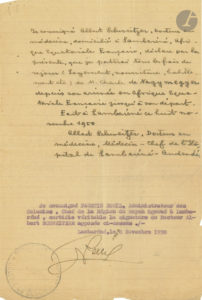 Je soussigné Albert Schweitzer, Docteur en
médecine, domicilié à Lambaréné, Afri-
que Equatoriale Française, déclare par la
présente, que je
séjour (logement, nourriture,
ment etc) de
depuis son arrivée en Afrique Equa-
toriale Française jusqu'à son départ.
Fait à Lambaréné ce huit no-
vembre 1950
Albert Schweitzer, Docteur en
médecine, Médecin-Chef de l'Hô-
pital de Lambaréné
Je soussigné Administrateur des
Colonies, Chef de la Région du Moyen Ogooué à Lamba-
réné, certifie véritable la signature du Docteur Al-
bert SCHWEITZER apposée ci-dessus ./-
Lambaréné, le Novembre 1950